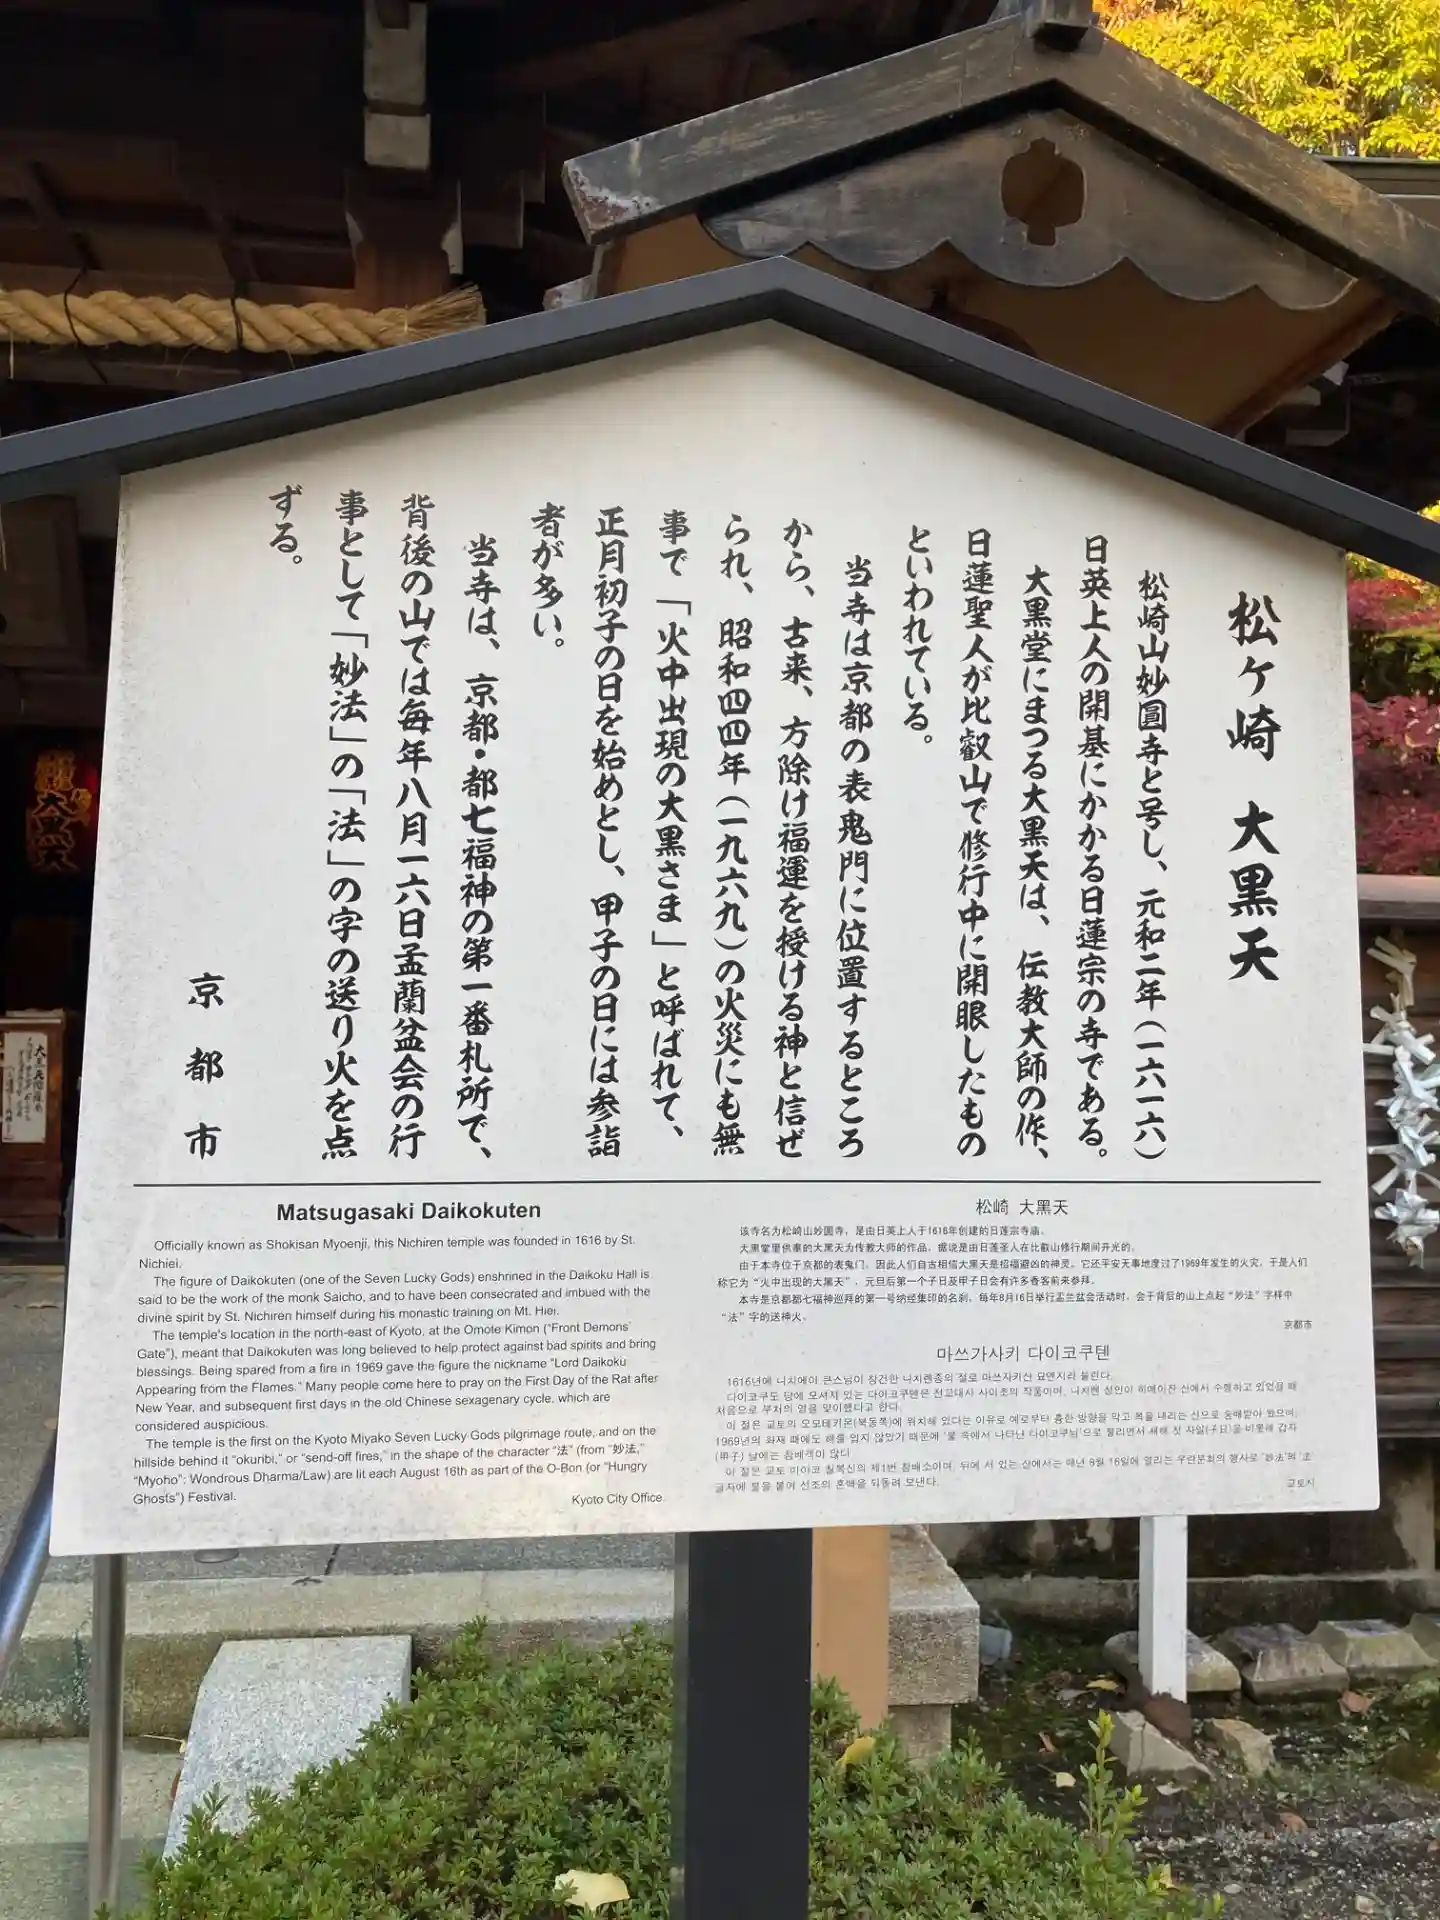 松ヶ崎 大黒天
松崎山妙圓寺と号し、元和二年(一六一六)
日英上人の開基にかかる日蓮宗の寺である。
大黒堂にまつる大黒天は、伝教大師の作、
日蓮聖人が比叡山で修行中に開眼したもの
といわれている。
当寺は京都の表鬼門に位置するところ
から、古来、方除け福運を授ける神と信ぜ
られ、昭和四四年(一九六九)の火災にも無
事で「火中出現の大黒さま」と呼ばれて、
正月初子の日を始めとし、甲子の日には参詣
者が多い。
当寺は、京都・都七福神の第一番札所で、
背後の山では毎年八月一六日盂蘭盆会の行
事として「妙法」の「法」の字の送り火を点
ずる。
京都市
Matsugasaki Daikokuten
Officially known as Shokisan Myoenji, this Nichiren temple was founded in 1616 by St.
Nichiei.
The figure of Daikokuten (one of the Seven Lucky Gods) enshrined in the Daikoku Hall is
said to be the work of the monk Saicho, and to have been consecrated and imbued with the
divine spirit by St. Nichiren himself during his monastic training on Mt. Hiei.
The temple's location in the north-east of Kyoto, at the Omote Kimon ("Front Demons'
Gate"), meant that Daikokuten was long believed to help protect against bad spirits and bring
blessings. Being spared from a fire in 1969 gave the figure the nickname "Lord Daikoku
Appearing from the Flames." Many people come here to pray on the First Day of the Rat after
New Year, and subsequent first days in the old Chinese sexagenary cycle, which are
considered auspicious.
The temple is the first on the Kyoto Miyako Seven Lucky Gods pilgrimage route, and on the
hillside behind it "okuribi," or "send-off fires," in the shape of the character "法" (from "妙法,"
"Myoho": Wondrous Dharma/Law) are lit each August 16th as part of the O-Bon (or "Hungry
Ghosts") Festival.
Kyoto City Office.
松崎 大黑天
该寺名为松崎山妙圆寺，是由日英上人于1616年创建的日莲宗寺庙。
大黑堂里供奉的大黑天为传教大师的作品，据说是由日莲圣人在比叡山修行期间开光的。
由于本寺位于京都的表鬼门，因此人们自古相信大黑天是招福避凶的神灵。它还平安无事地度过了1969年发生的火灾，于是人们
称它为“火中出现的大黑天”，元旦后第一个子日及甲子日会有许多香客前来参拜。
本寺是京都都七福神巡拜的第一号纳经集印的名刹，每年8月16日举行盂兰盆会活动时，会于背后的山上点起“妙法”字样中
“法”字的送神火。
京都市
마쓰가사키 다이코쿠텐
1616년에 니치에이 큰스님이 창건한 니치렌종의 절로 마쓰자키산 묘엔지라 불린다.
다이코쿠도 당에 모셔져 있는 다이코쿠텐은 전교대사 사이초의 작품이며, 니치렌 성인이 히에이잔 산에서 수행하고 있었을 때
처음으로 부처의 영을 맞이했다고 한다.
이 절은 교토의 오모테키몬(북동쪽)에 위치해 있다는 이유로 예로부터 흉한 방향을 막고 복을 내리는 신으로 숭배받아 왔으며,
1969년의 화재 때에도 해를 입지 않았기 때문에 '불 속에서 나타난 다이코쿠님'으로 불리면서 새해 첫 자일(子日)을 비롯해 갑자
(甲子) 날에는 참배객이 많다.
이 절은 교토 미야코 칠복신의 제1번 참배소이며, 뒤에 서 있는 산에서는 매년 8월 16일에 열리는 우란분회의 행사로 '妙法'의 '法'
글자에 불을 붙여 선조의 혼백을 되돌려 보낸다.
교토시
大黒天